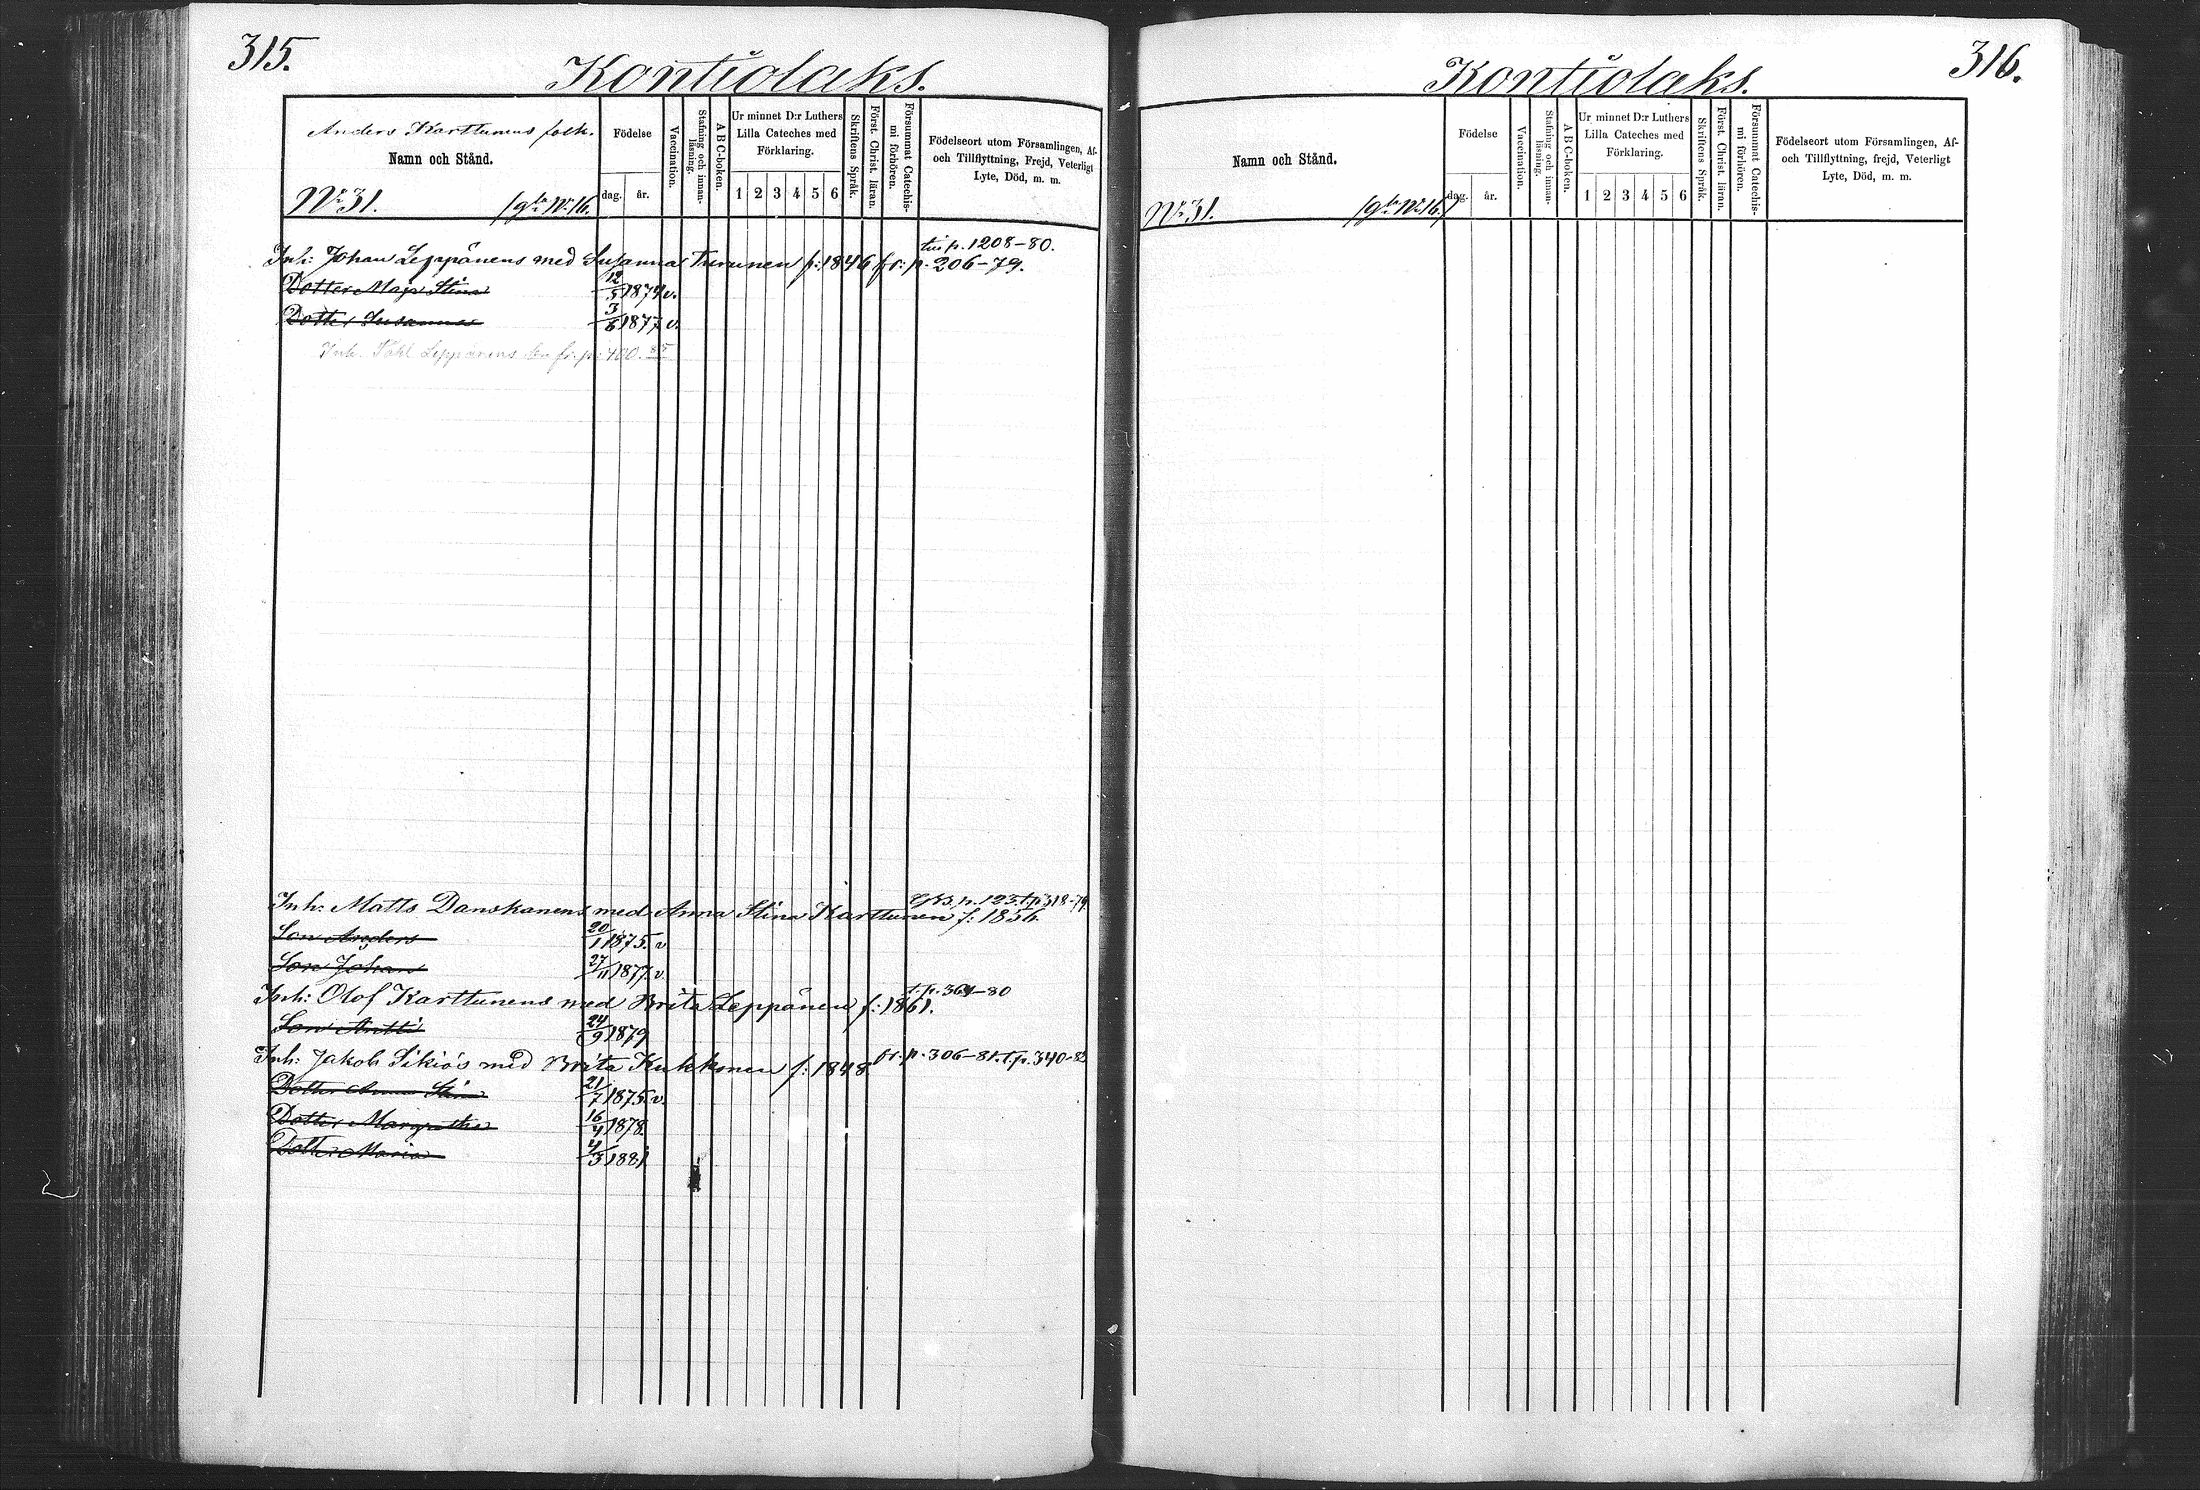 315.
Kontiolaks.
Anders Karttunens folk.
Namn och Stånd.
N:r 31. (g:le N:r 16.
Födelse
dag. år.
Vaccination.
Stafning och innan-
läsning.
A B C-boken.
Ur minnet D:r Luthers
Lilla Cateches med
Förklaring.
1 2 3 4 5 6
Skriftens Språk.
Först. Christ. läran.
Försummat Catechis-
mi förhören.
Födelseort utom Församlingen, Af-
och Tillflyttning, Frejd, Veterligt
Lyte, Död, m. m.
p. 1208-80.
Inh: Johan Leppänens med Susanna Turunen f: 1846 fr: p. 206-79.
Dotter Maja Stina 12/5 1874 v.
Dotter Susanna 3/6 1877 v.
Inh. Leppänens fr. p. 400.85
p. 123. t.p. 318-79
Inh: Matts Danskanens med Anna Stina Karttunen f: 1854.
Son Anders 20/1 1875. v
Son Johan 27/11 1877. v.
t. p. 364-80
Inh: Olof Karttunens med Brita Leppänen f: 1861.
Son Antti 24/9 1879
Inh: Jakob Sikiös med Brita Kukkonen f: 1848 fr. p. 306-81. t.p. 340-82
Dotter Anna Stina 21/7 1875. v.
Dotter Margretha 16/4 1878.
Dotter Maria 4/3 1881
316.
Kontiolaks.
Namn och Stånd.
N:r 31. (g:le N:r 16.)
Födelse
dag. år.
Vaccination.
Stafning och innan-
läsning.
A B C-boken.
Ur minnet D:r Luthers
Lilla Cateches med
Förklaring.
1 2 3 4 5 6
Skriftens Språk.
Först. Christ. läran.
Försummat Catechis-
mi förhören.
Födelseort utom Församlingen, Af-
och Tillflyttning, frejd, Veterligt
Lyte, Död, m. m.